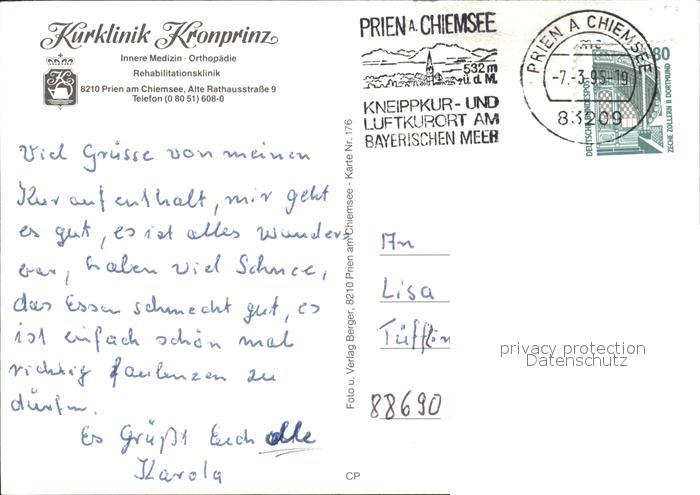 Kurklinik Kronprinz
Innere Medizin · Orthopädie
Rehabilitationsklinik
8210 Prien am Chiemsee, Alte Rathausstraße 9
Telefon (0 80 51) 608-0
PRIEN A. CHIEMSEE
532 m
ü. d. M.
KNEIPPKUR- UND
LUFTKURORT AM
BAYERISCHEN MEER
PRIEN A CHIEMSEE
-7.-3.95-19
83209
80
DEUTSCHE BUNDESPOST
ZECHE ZOLLERN II DORTMUND
Viel Grüsse von meinen
Kuraufenthalt, mir geht
es gut, es ist alles wunder-
bar, haben viel Schnee,
das Essen schmeckt gut, es
ist einfach schön mal
richtig faulenzen zu
dürfen.
Es Grüßt Euch alle
Karola
Foto u. Verlag Berger, 8210 Prien am Chiemsee - Karte Nr. 176
An
Lisa
88690
CP
privacy protection
Datenschutz